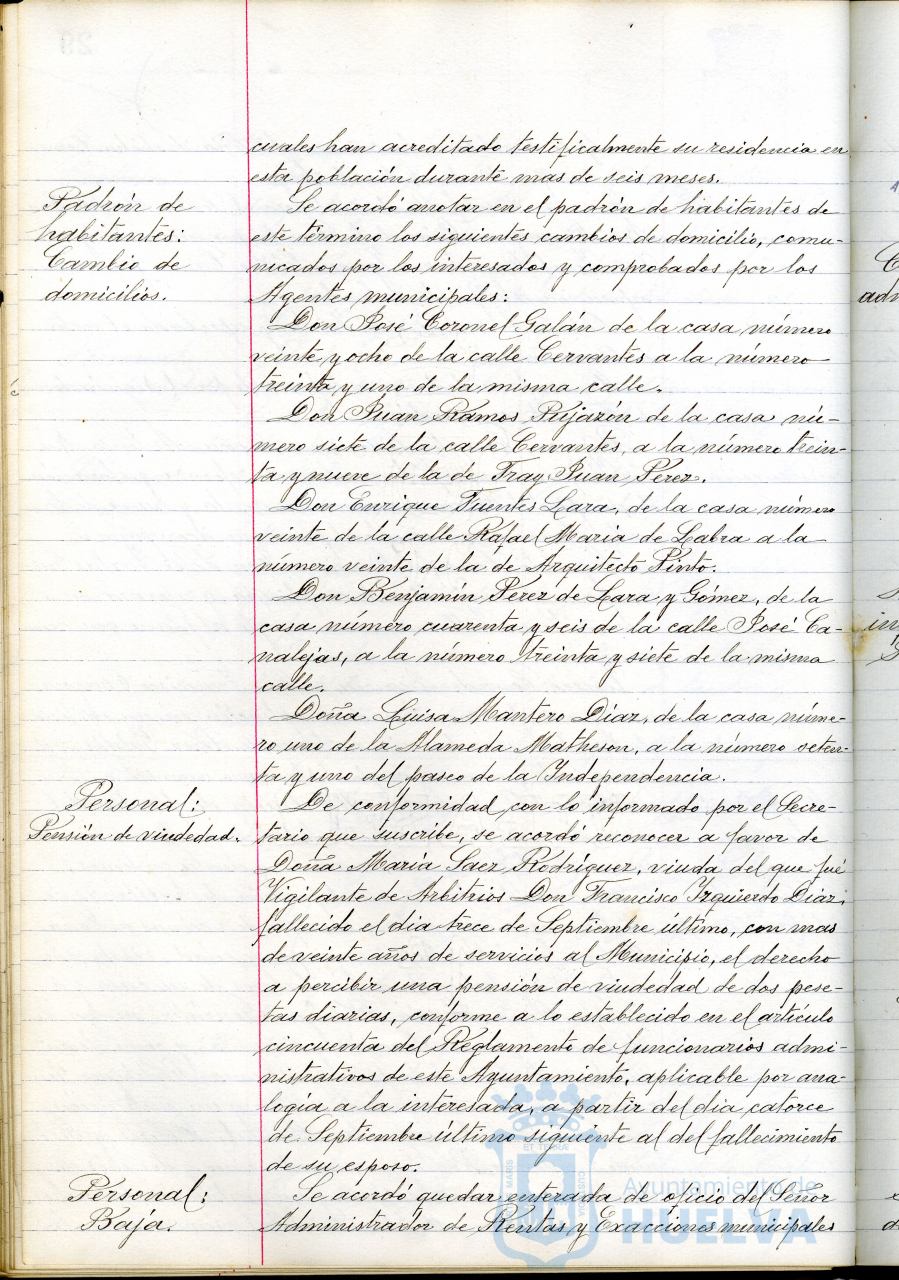 cuales han acreditado testificalmente su residencia en
esta población durante mas de seis meses.
Padrón de
habitantes:
Cambio de
domicilios.
Se acordó anotar en el padrón de habitantes de
este término los siguientes cambios de domicilio, comu-
nicados por los interesados y comprobados por los
Agentes municipales:
Don José Coronel Galán de la casa número
veinte y ocho de la calle Cervantes a la número
treinta y uno de la misma calle.
Don Juan Ramos Pujazón de la casa nú-
mero siete de la calle Cervantes, a la número trein-
ta y nueve de la de Fray Juan Pérez.
Don Enrique Fuentes Lara, de la casa número
veinte de la calle Rafael Maria de Labra a la
número veinte de la de Arquitecto Pinto.
Don Benjamín Pérez de Lara y Gómez, de la
casa número cuarenta y seis de la calle José Ca-
nalejas, a la número treinta y siete de la misma
calle.
Doña Luisa Mantero Díaz, de la casa núme-
ro uno de la Alameda Matheson, a la número seten-
ta y uno del paseo de la Independencia.
Personal:
Pensión de viudedad.
De conformidad con lo informado por el Secre-
tario que suscribe, se acordó reconocer a favor de
Doña María Saez Rodríguez, viuda del que fué
Vigilante de Arbitrios Don Francisco Izquierdo Díaz,
fallecido el dia trece de Septiembre último, con mas
de veinte años de servicios al Municipio, el derecho
a percibir una pensión de viudedad de dos pese-
tas diarias, conforme a lo establecido en el artículo
cincuenta del Reglamento de funcionarios admi-
nistrativos de este Ayuntamiento, aplicable por ana-
logía a la interesada, a partir del dia catorce
de Septiembre último siguiente al del fallecimiento
de su esposo.
Personal:
Baja.
Se acordó quedar enterada de oficio del Señor
Administrador de Rentas y Exacciones municipales
Ayuntamiento de
HUELVA